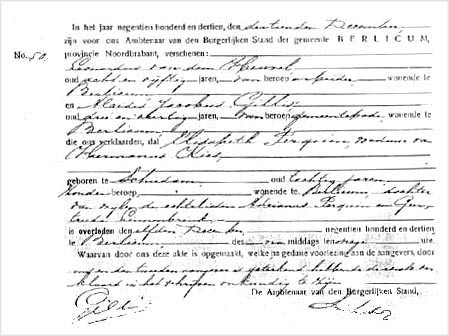 In het jaar negentien honderd en dertien, den dertienden December
zijn voor ons Ambtenaar van den Burgerlijken Stand der gemeente BERLICUM,
No. 50. provincie Noordbrabant, verschenen:
Leonardus van den Heuvel
oud acht en vijftig jaren, van beroep wonende te
Berlicum
en Jacobus Gillis
oud drie en veertig jaren, van beroep gemeentebode, wonende te
Berlicum
die ons verklaarden, dat Elisabeth weduwe van
Hermanus
geboren te Schiedam oud tachtig jaren
zonder beroep, wonende te Berlicum dochter
van wijlen de echtelieden en Ger
truda
is overleden den elfden December negentien honderd en dertien
te Berlicum des middags ten ure.
Waarvan door ons deze akte is opgemaakt, welke na gedane voorlezing aan de aangevers, door
ons en den tweeden aangever is geteekend hebbende de eerste ver
klaard in het schrijven onkundig te zijn
De Ambtenaar van den Burgerlijken Stand,
Gillis